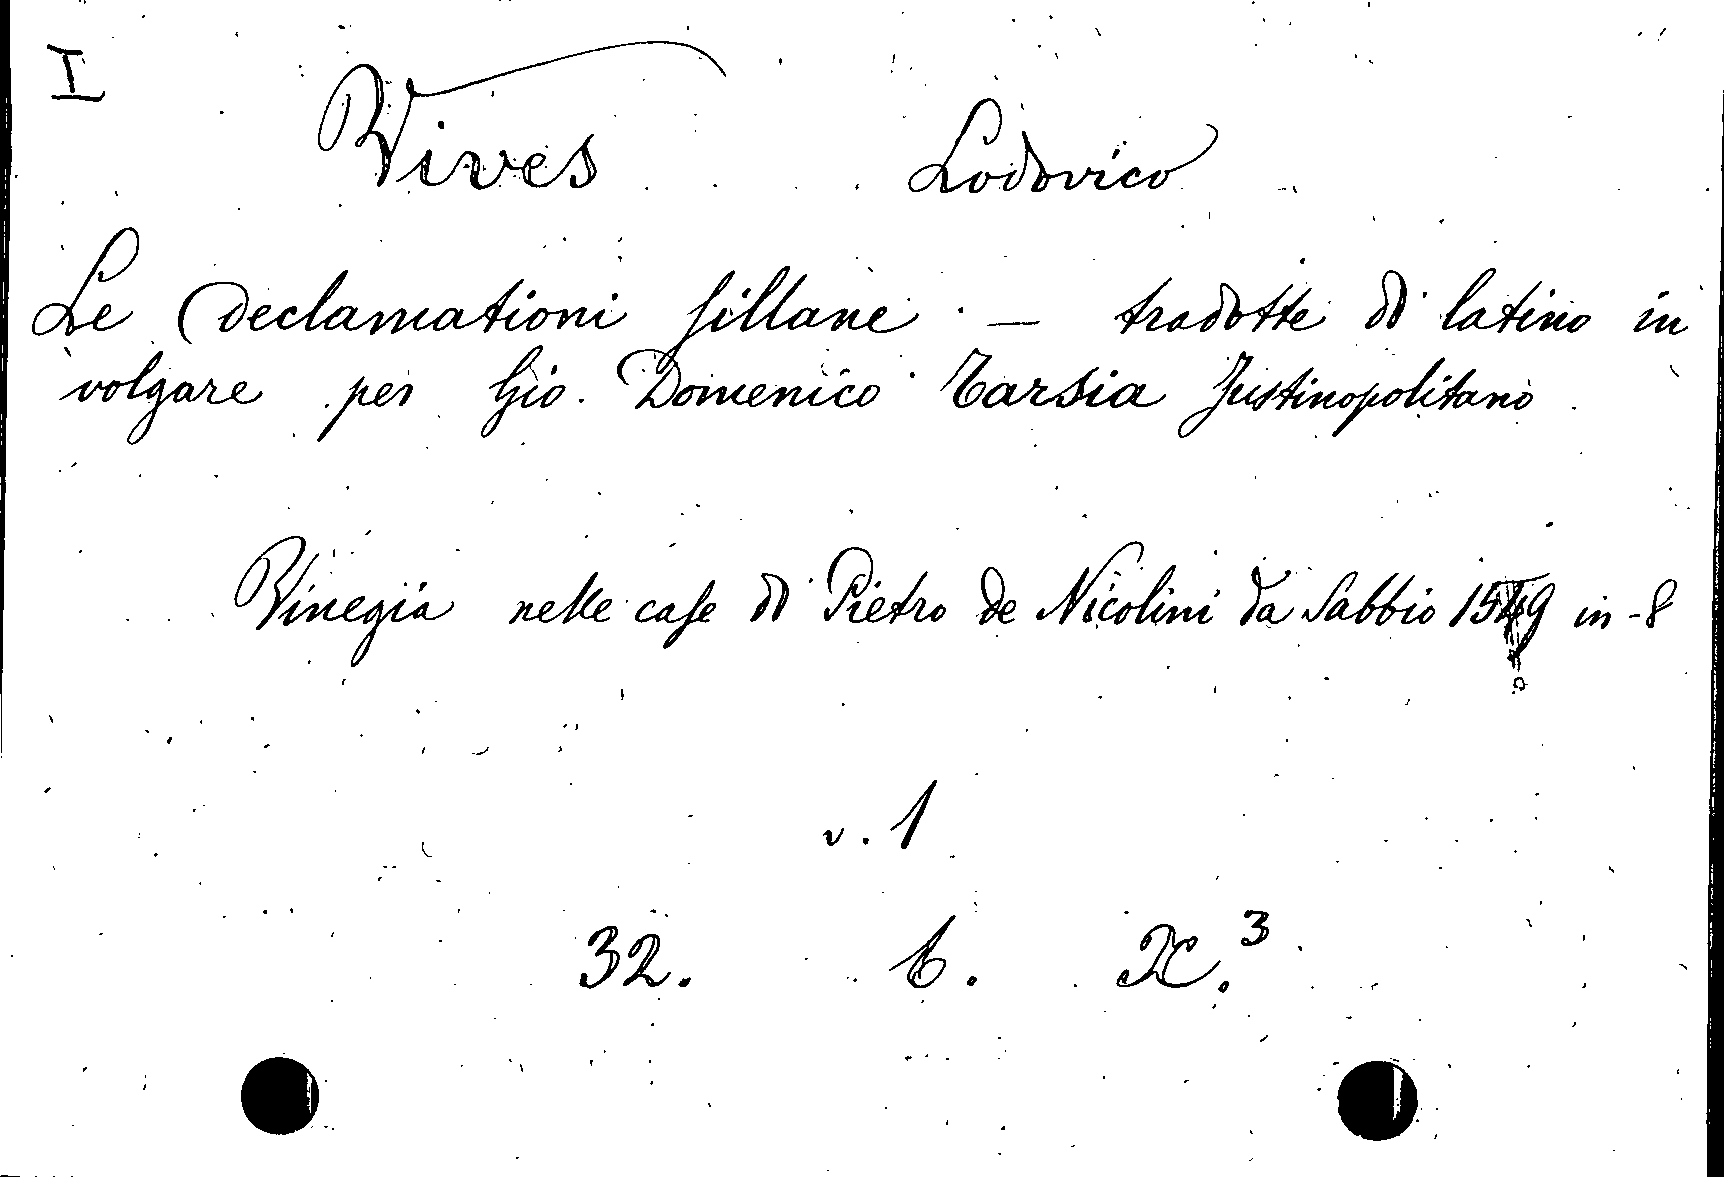 I
Vives Lodovico
Le Declamationi sillane — tradotte di latino in
volgare per Gio. Domenico Tarsia Justinopolitano
Vinegia nelle case di Pietro de Nicolini da Sabbio 1549 in-8
v. 1
32. b. K.³